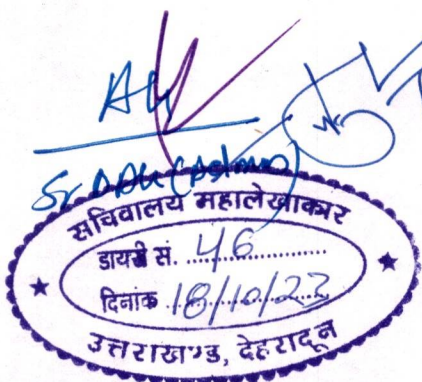 AG
Sr DAG (Admn)
सचिवालय महालेखाकार
डायरी सं. 46
दिनांक 18/10/23
उत्तराखण्ड, देहरादून